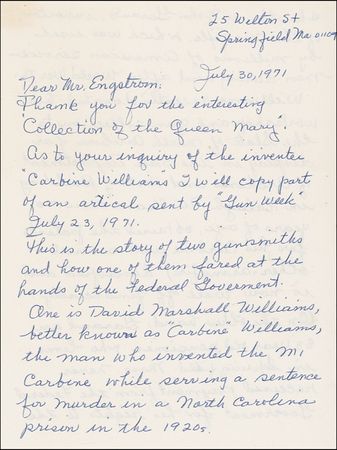 25 Welton St
Springfield Ma 01109
July 30, 1971
Dear Mr. Engstrom:
Thank you for the interesting
"Collection of the Queen Mary".
As to your inquiry of the inventer
"Carbine Williams" I will copy part
of an artical sent by "Gun Week"
July 23, 1971.
This is the story of two gunsmiths
and how one of them fared at the
hands of the Federal Goverment.
One is David Marshall Williams,
better known as "Carbine" Williams,
the man who invented the M1
Carbine while serving a sentence
for murder in a North Carolina
prison in the 1920s.